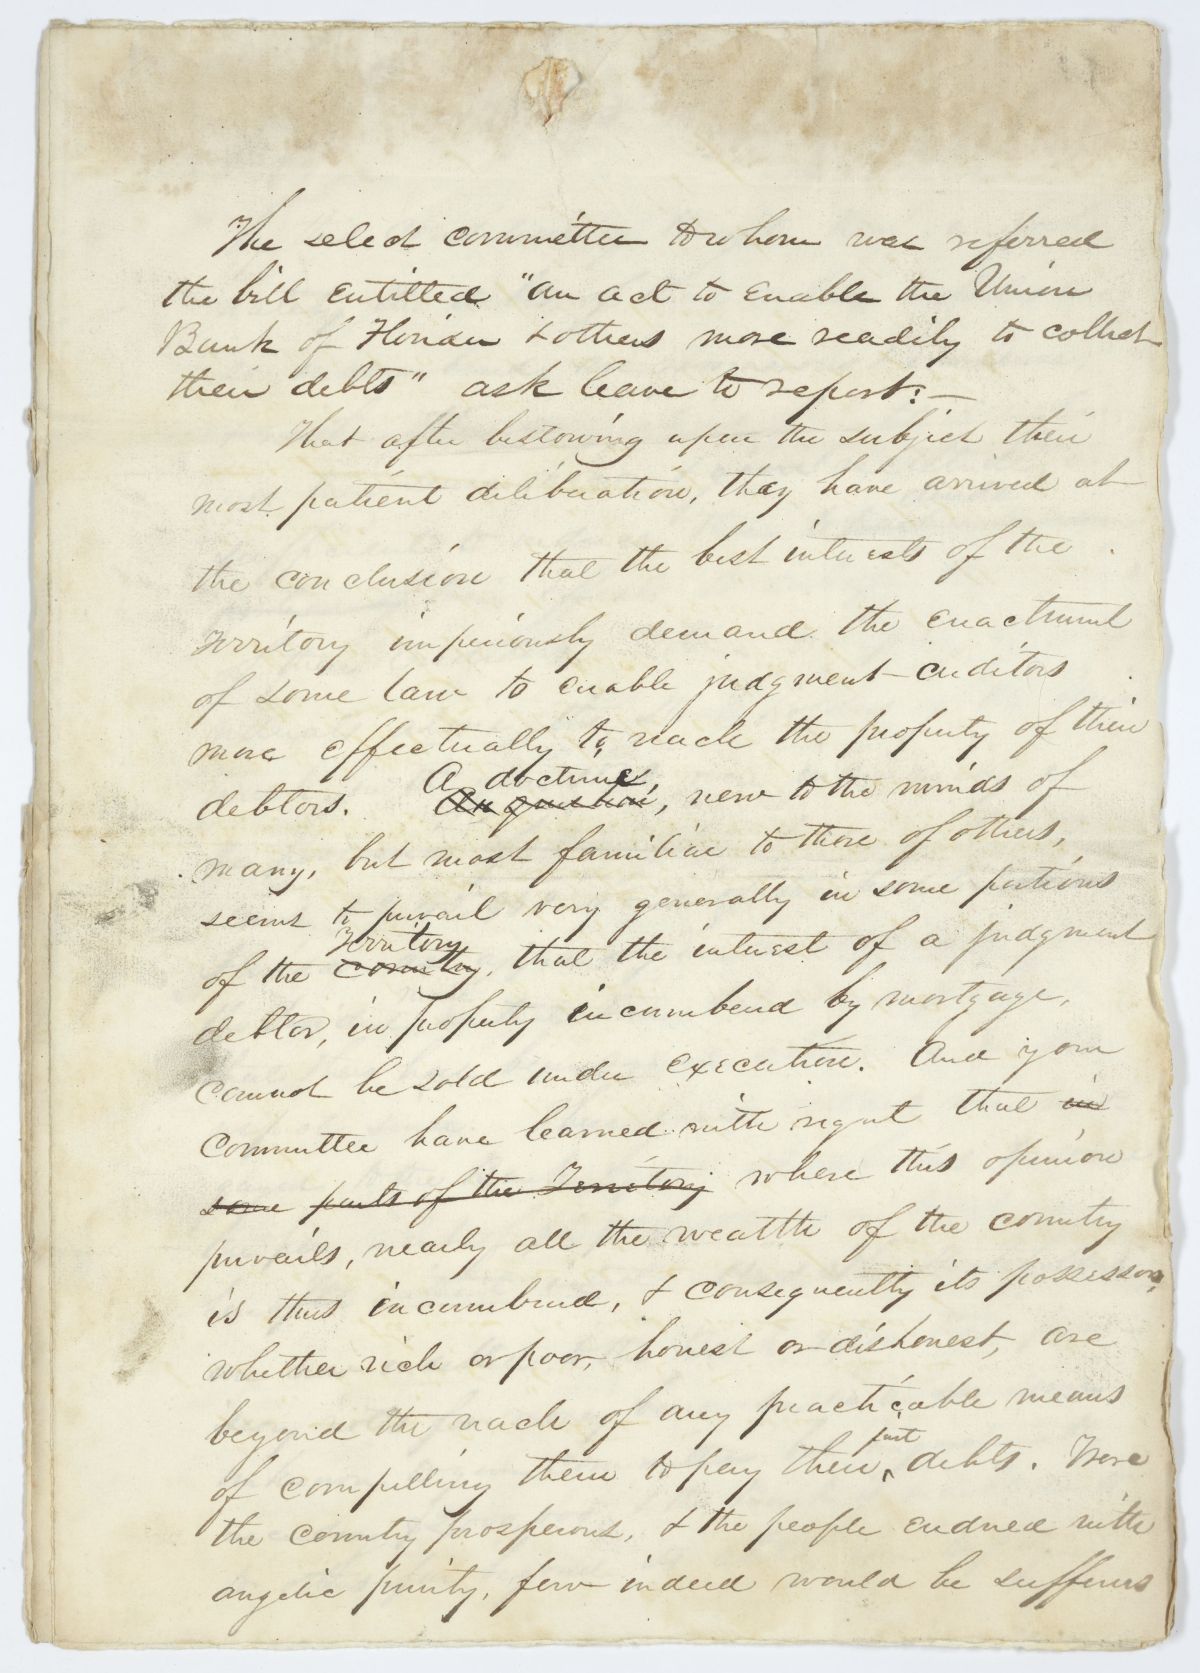 The select committee to whom was referred
the bill entitled "an act to enable the Union
Bank of Florida & others more readily to collect
their debts" ask leave to report:—
That after bestowing upon the subject their
most patient deliberation, they have arrived at
the conclusion that the best interests of the
Territory imperiously demand the enactment
of some law to enable judgment creditors
more effectually to reach the property of their
A doctrine
debtors. An question, new to the minds of
many, but most familiar to those of others,
seems to prevail very generally in some portions
Territory
of the country, that the interest of a judgment
debtor, in property incumberd by mortgage,
cannot be sold under execution. And your
committee have learned with regret that in
some parts of the Territory where this opinion
prevails, nearly all the wealth of the country
is thus incumbered, & consequently its possessors,
whether rich or poor, honest or dishonest, are
beyond the reach of any practicable means
just
of compelling them to pay their debts. Were
the country prosperous, & the people endued with
angelic purity, few indeed would be sufferers